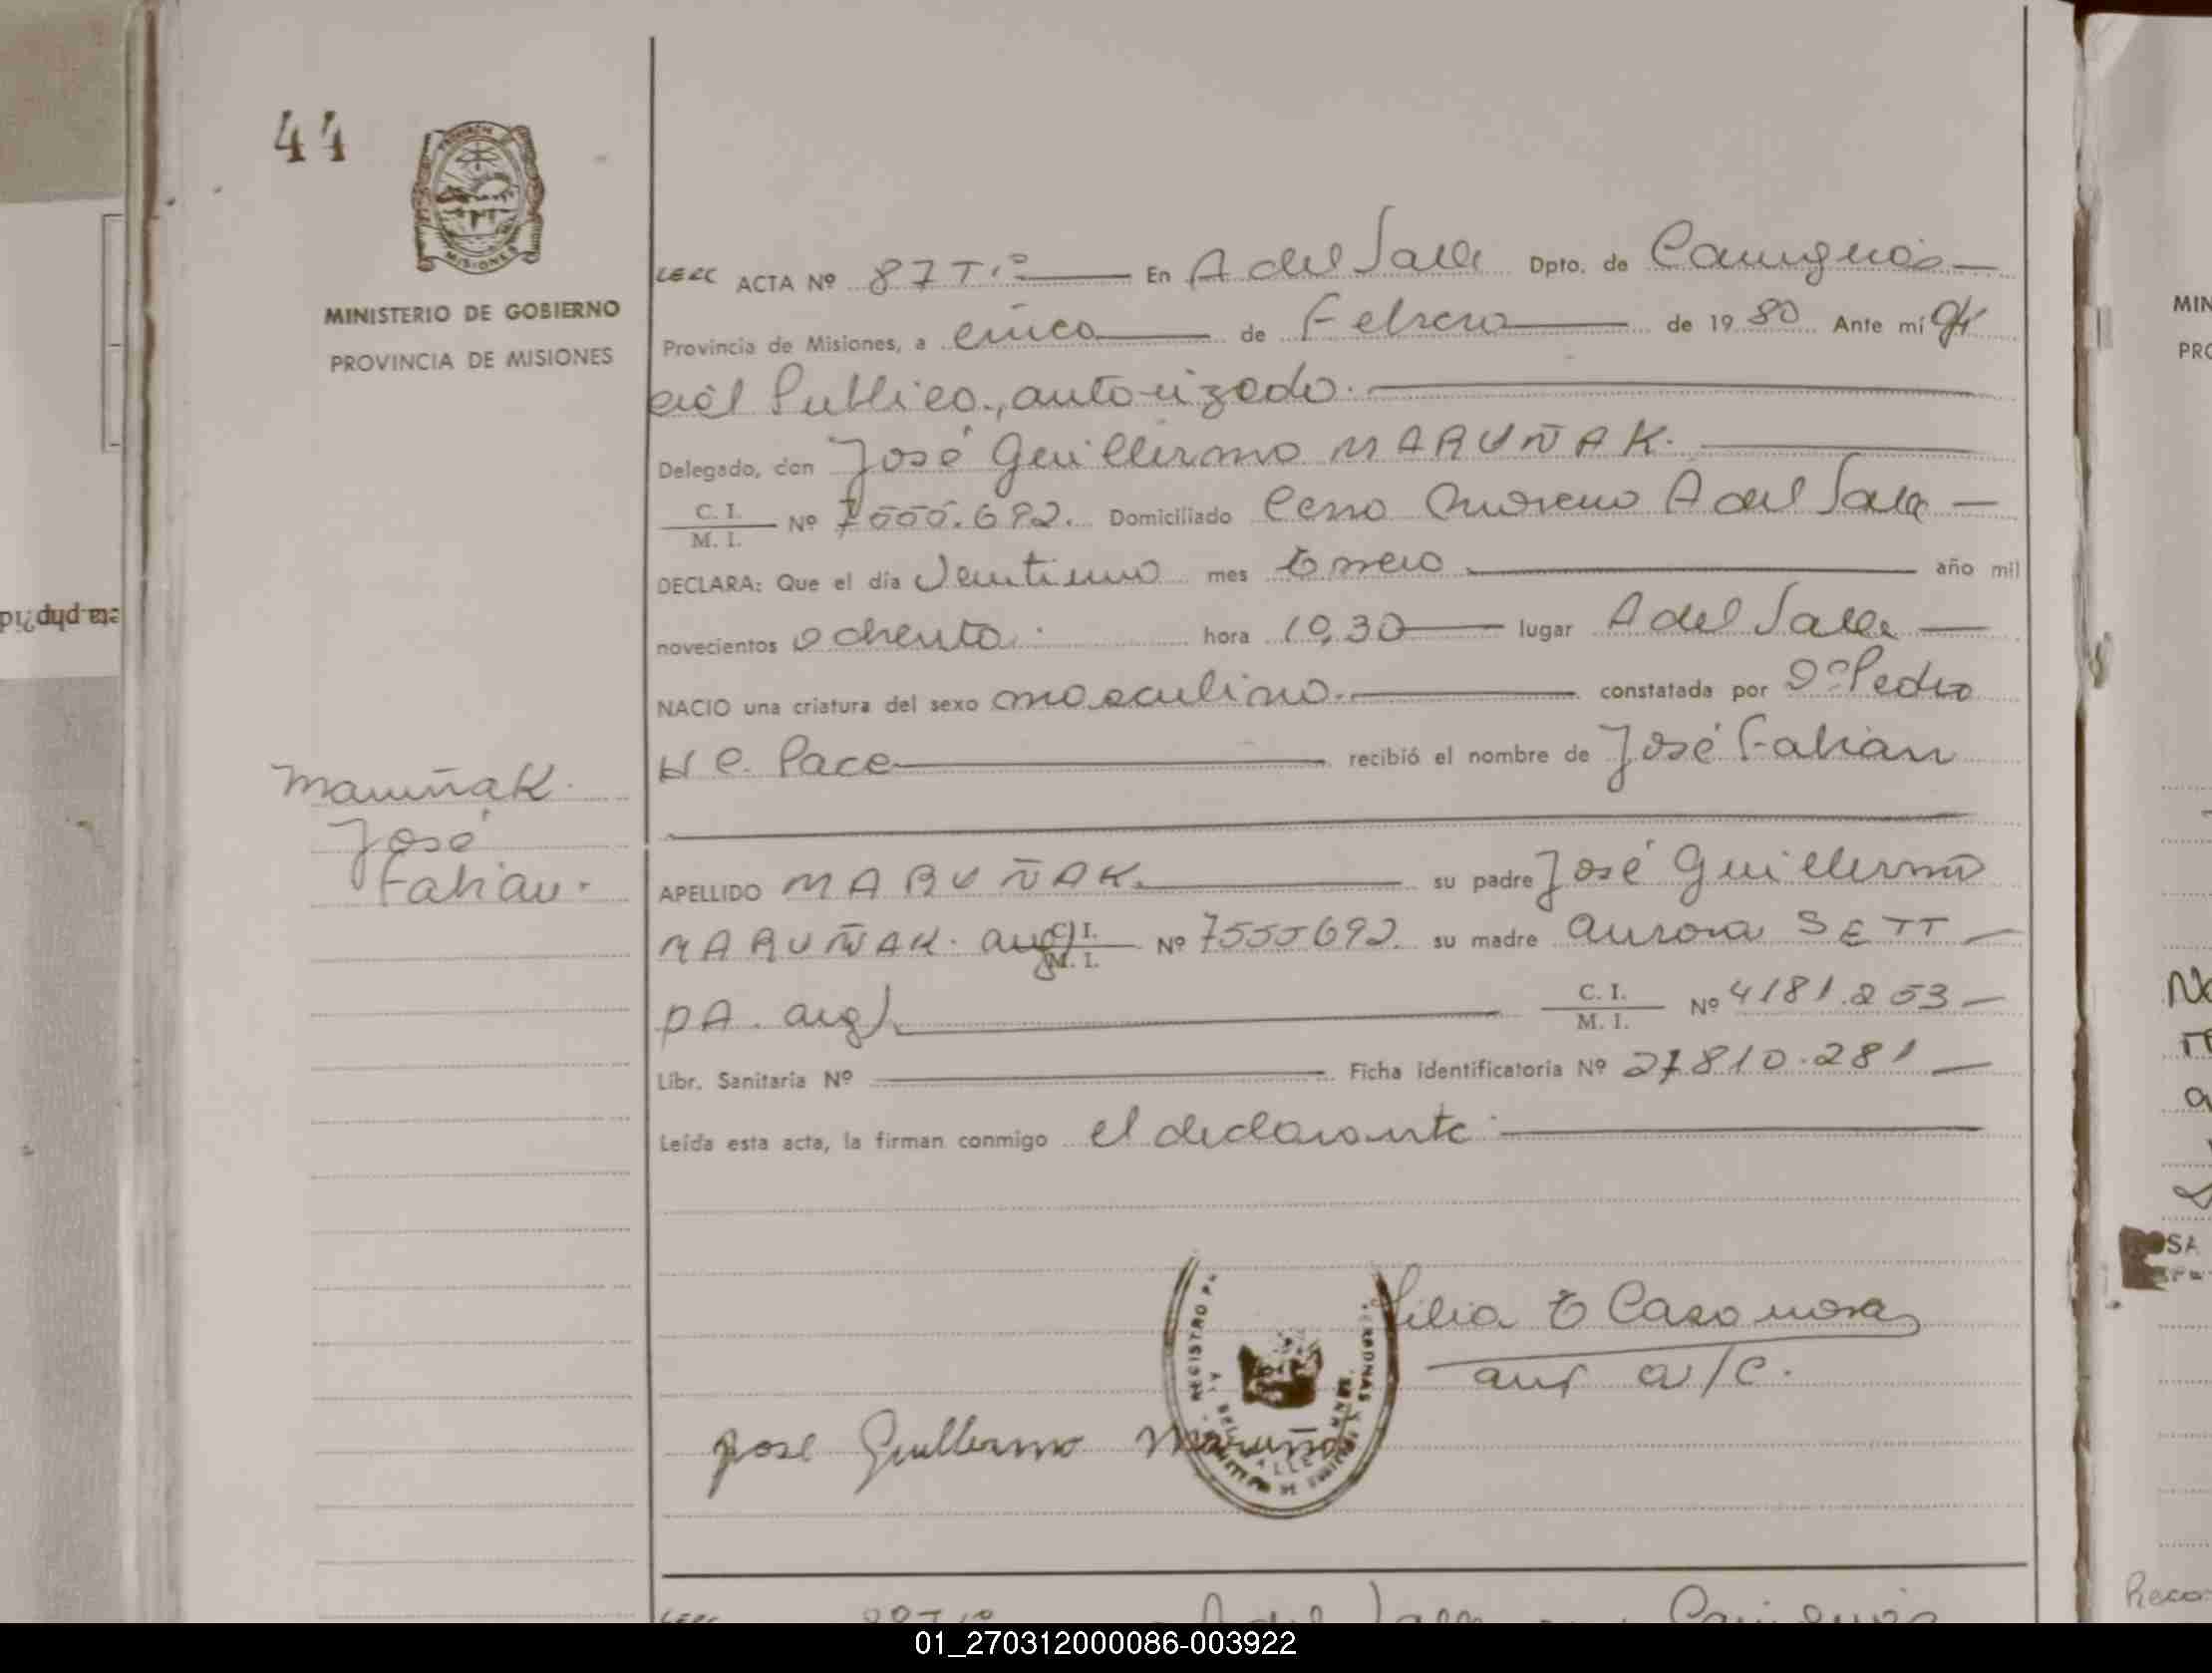 44
PROVINCIA DE
MISIONES
MINISTERIO DE GOBIERNO
PROVINCIA DE MISIONES
ACTA Nº 87 Tº En A del Valle Dpto. de Cainguás
Provincia de Misiones, a cinco de Febrero de 1980 Ante mí Ofi
cial Publico, autorizado.
Delegado, don José Guillermo MARUÑAK.
C. I.
M. I. Nº 7555.692. Domiciliado Cerro Moreno A del Valle
DECLARA: Que el día Veintiuno mes Enero año mil
novecientos ochenta. hora 10,30 lugar A del Valle
NACIO una criatura del sexo masculino. constatada por Dº Pedro
H C. Pace recibió el nombre de José Fabian
Maruñak.
José
Fabian.
APELLIDO MARUÑAK. su padre José Guillermo
MARUÑAK. arg) C. I. M. I. Nº 7555692. su madre Aurora SETT
DA. arg) C. I. M. I. Nº 4181.253
Libr. Sanitaria Nº Ficha identificatoria Nº 27.810.281
Leída esta acta, la firman conmigo el declarante.
Lilia E Casanova
a/c.
Jose Guillermo Maruñak
REGISTRO
PERSONAS
A DEL VALLE
Cainguás
eta.php?id
MIN
PRO
Reco
01_270312000086-003922